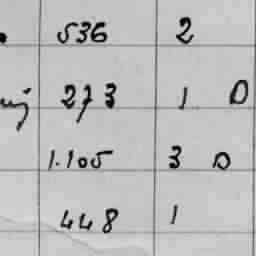 536 2
273 1 D
1.105 3 D
448 1